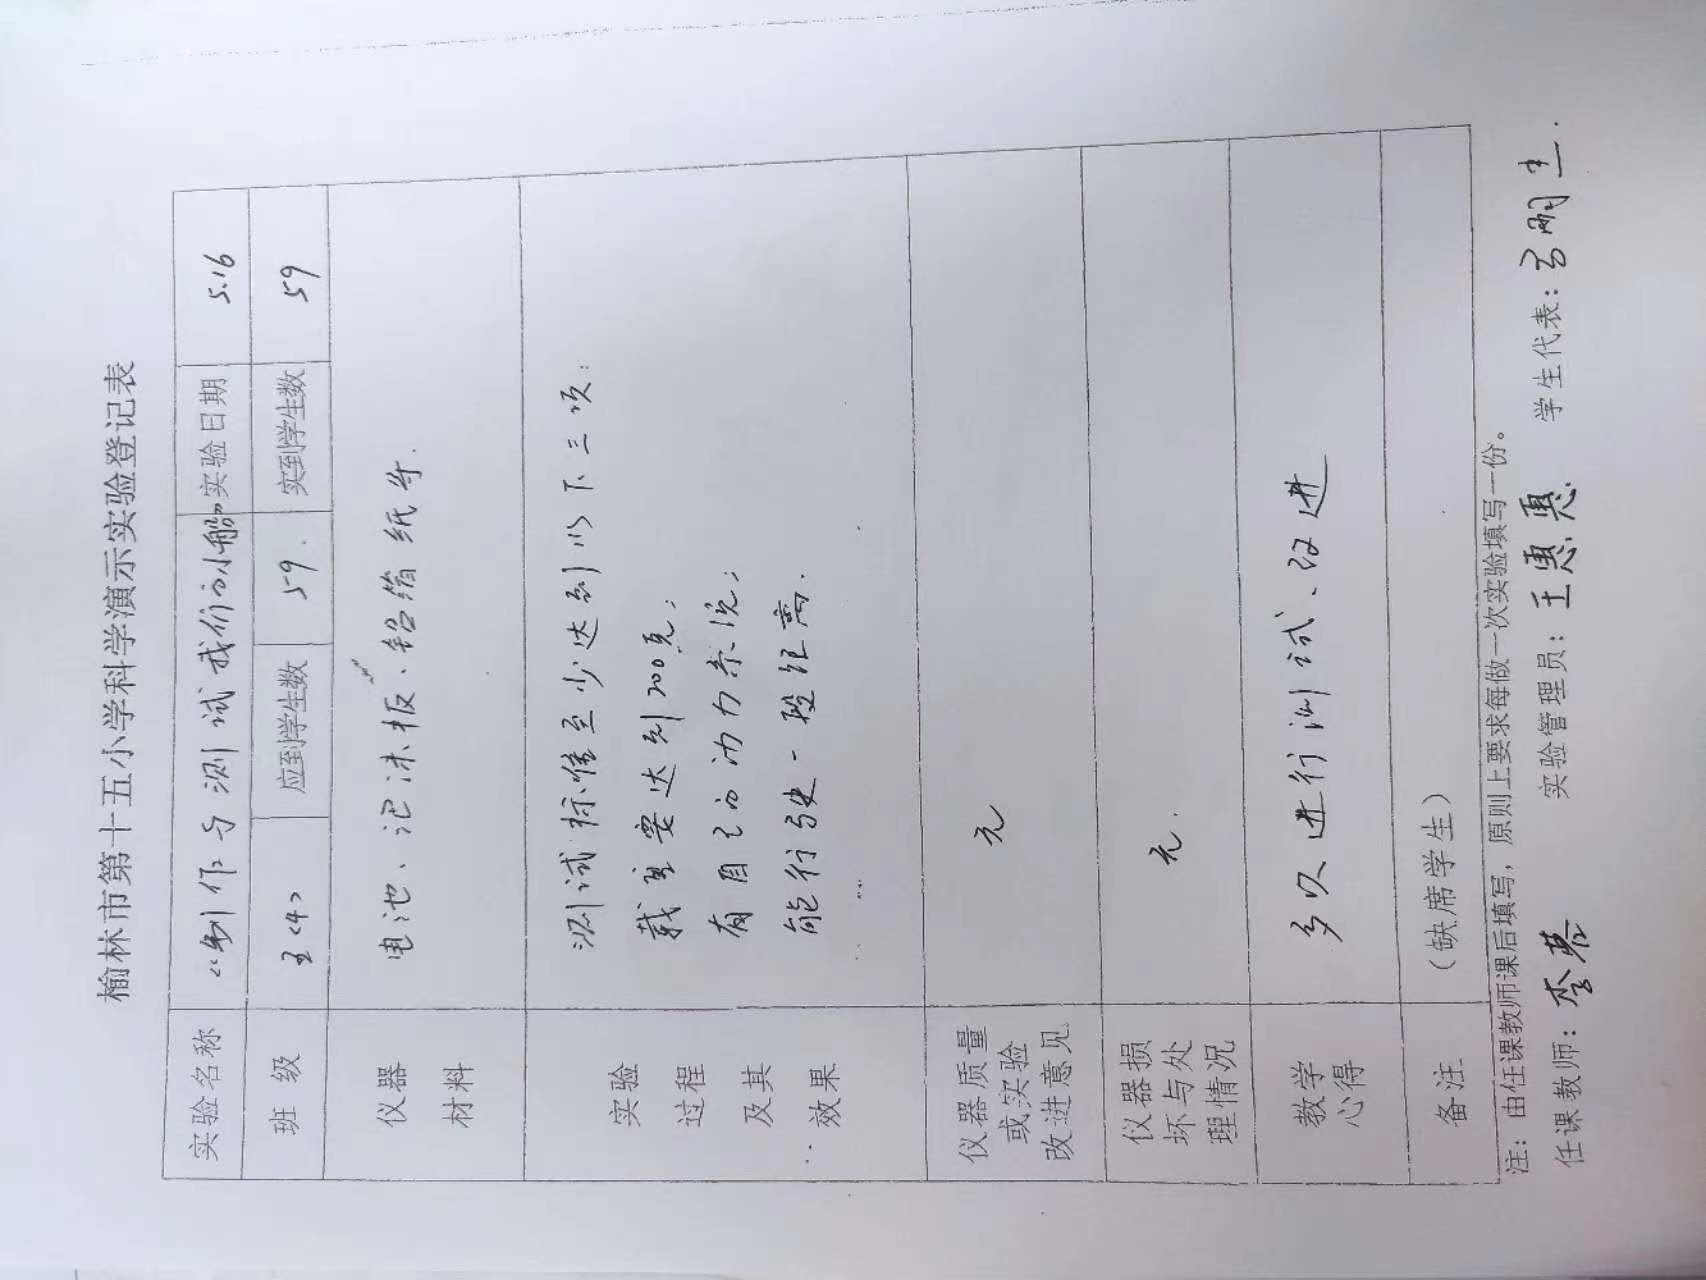 榆林市第十五小学科学演示实验登记表
实验名称 “制作与测试我们的小船” 实验日期 5.16
班 级 五〈4〉 应到学生数 59. 实到学生数 59
仪器
材料
电池、泡沫板、铝箔纸等.
实验
过程
及其
效果
测试标准至少达到以下三项:
载重要达到200克;
有自己的动力系统;
能行驶一段距离.
仪器质量
或实验
改进意见
无
仪器损
坏与处
理情况
无.
教学
心得
多次进行测试、改进
备注
(缺席学生)
注:由任课教师课后填写,原则上要求每做一次实验填写一份。
任课教师: 李 实验管理员: 王惠惠 学生代表: